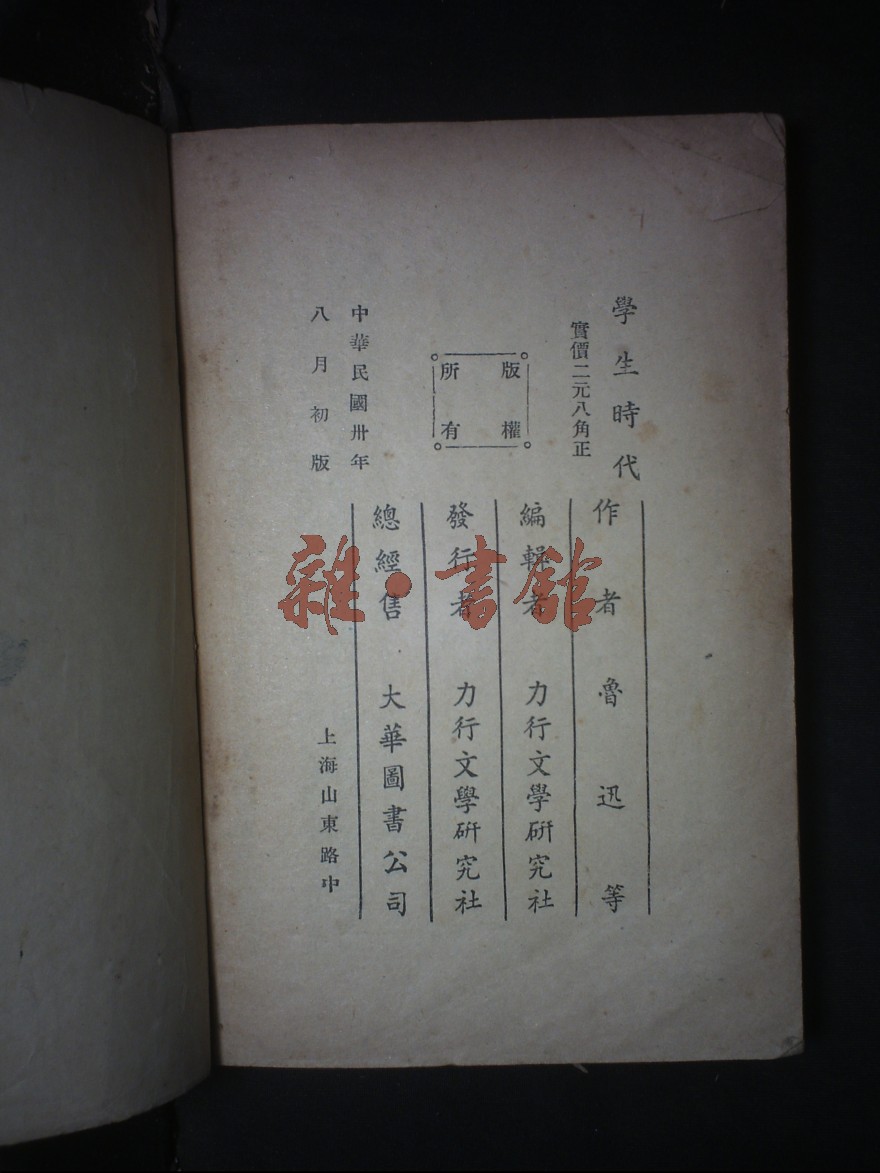 學生時代
實價二元八角正
版權
所有
中華民國卅年
八月初版
作者 魯迅等
編輯者 力行文學研究社
發行者 力行文學研究社
總經售 大華圖書公司
上海山東路中
雜·書館